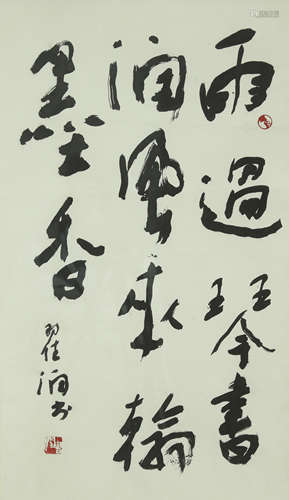 雨過琴書
潤風來翰
墨香
翟潤书